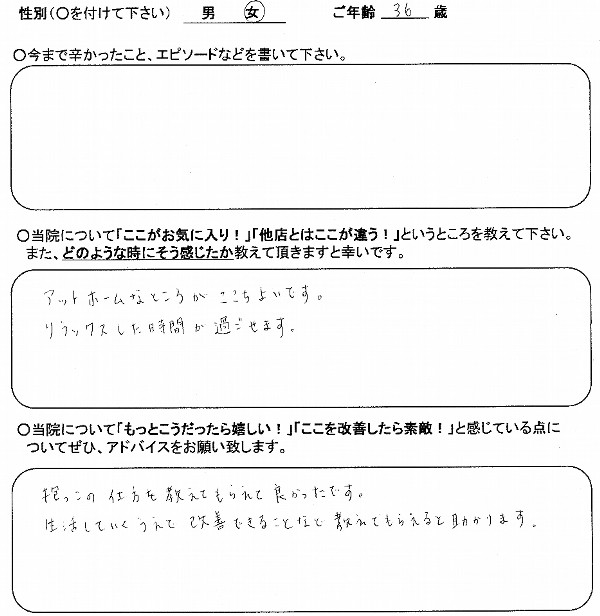 性別(○を付けて下さい) 男 女 ご年齢 36 歳
○今まで辛かったこと、エピソードなどを書いて下さい。
○当院について「ここがお気に入り!」「他店とはここが違う!」というところを教えて下さい。
また、どのような時にそう感じたか教えて頂きますと幸いです。
アットホームなところがここちよいです。
リラックスした時間が過ごせます。
○当院について「もっとこうだったら嬉しい!」「ここを改善したら素敵!」と感じている点に
ついてぜひ、アドバイスをお願い致します。
抱っこの仕方を教えてもらえて良かったです。
生活していくうえで改善できることなど教えてもらえると助かります。